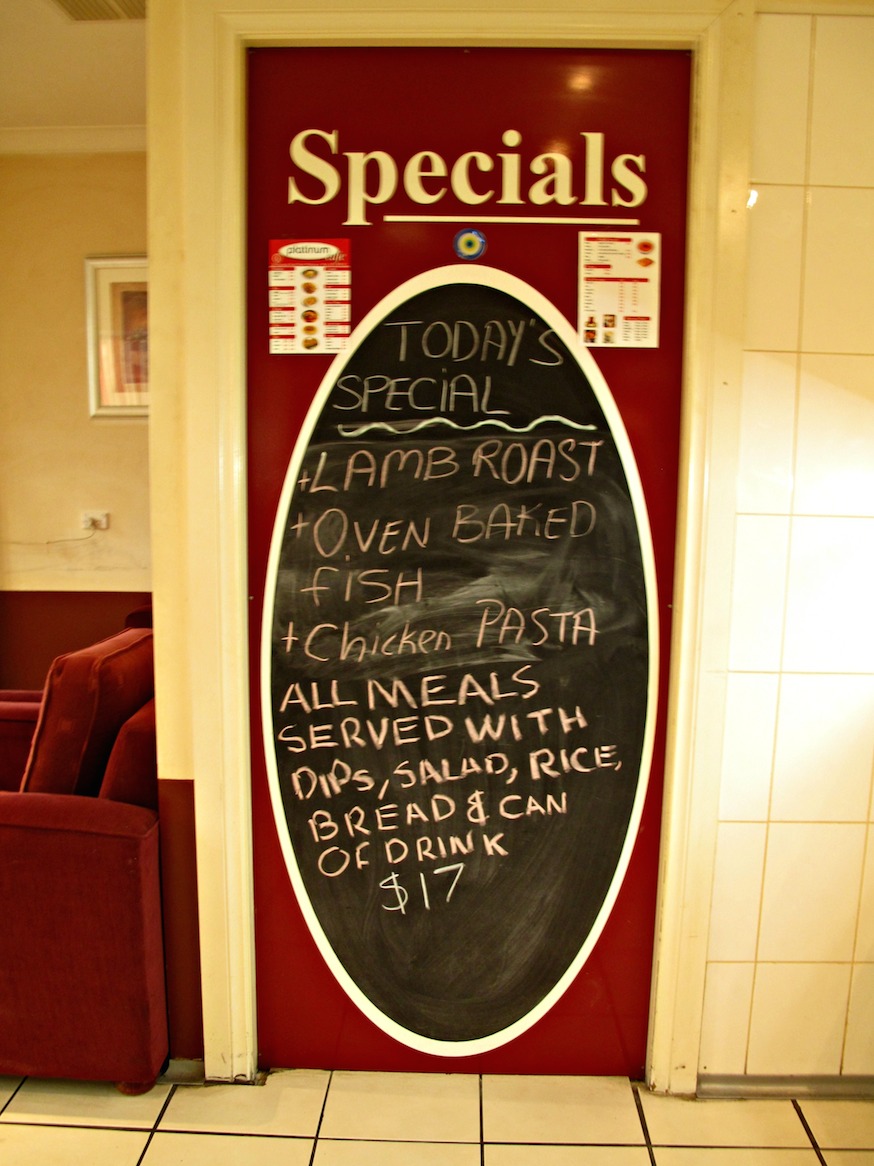 Specials
platinum
cafe
TODAY'S
SPECiAL
+LAMB ROAST
+OVEN BAKED
fiSH
+Chicken PASTA
ALL MEALS
SERVED WITH
DIPS, SALAD, RICE,
BREAD & CAN
OF DRINK
$17